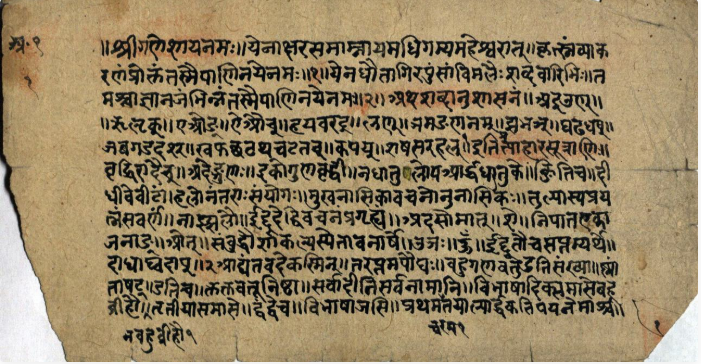 अ॰ १
॥श्रीगणेशायनमः॥येनाक्षरसमाम्नायमधिगम्यमहेश्वरात्॥कृत्स्नंव्याक
रणंप्रोक्तंतस्मैपाणिनयेनमः॥१॥येनधौतागिरःपुंसांविमलैःशब्दवारिभिः॥त
मश्चाज्ञानजंभिन्नंतस्मैपाणिनयेनमः॥२॥अथशब्दानुशासनं॥अइउण्॥
॥ऋऌक्॥एओङ्॥ऐऔच्॥हयवरट्॥लण्॥ञमङणनम्॥झभञ्॥घढधष्॥
जबगडदश्॥खफछठथचटतव्॥कपय्॥शषसर्हल्॥इतिप्रत्याहारसूत्राणि॥
वृद्धिरादैच्॥अदेङ्गुणः॥इकोगुणवृद्धी॥नधातुलोपआर्द्धधातुके॥क्ङितिच॥दी
धीवेवीटां॥हलोनंतराःसंयोगः॥मुखनासिकावचनोनुनासिकः॥तुल्यास्यप्रय
त्नंसवर्णं॥नाज्झलौ॥ईदूदेद्द्विवचनंप्रगृह्यं॥अदसोमात्॥शे॥निपातएका
जनाङ्॥ओत्॥संबुद्धौशाकल्यस्येतावनार्षे॥उञः॥ऊँ॥ईदूतौचसप्तम्यर्थे॥
दाधाघ्वदाप्॥आद्यंतवदेकस्मिन्॥तरप्तमपौघः॥बहुगणवतुडतिसंख्या॥ष्णां
ताषट्॥डतिच॥क्तक्तवतूनिष्ठा॥सर्वादीनिसर्वनामानि॥विभाषादिक्समासेबहु
व्रीहौ॥तृतीयासमासे॥द्वंद्वेच॥विभाषाजसि॥प्रथमचरम
नबहुव्रीहौ१